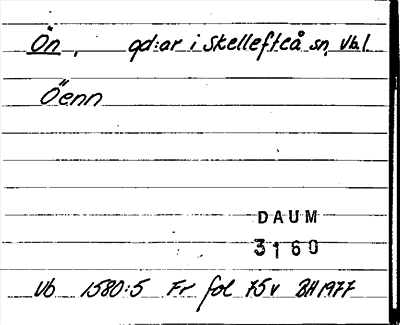 Ön, gd:ar i Skellefteå sn, Vb.l.
Öenn
DAUM
3160
Vb 1580:5 Fr fol 75v BH 1977